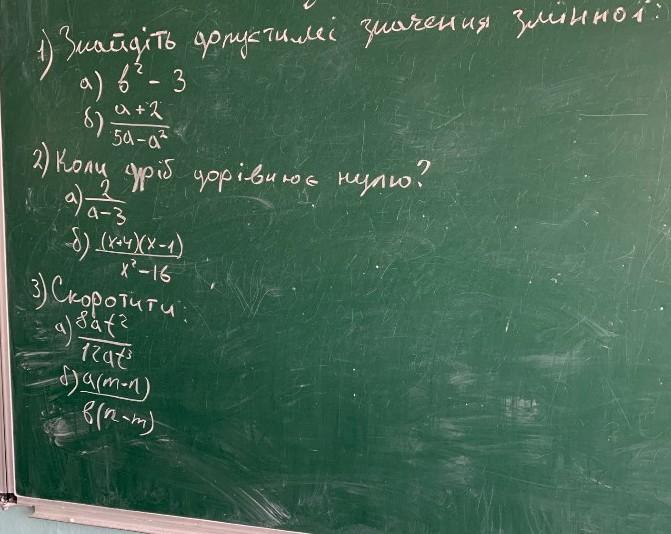 1) Знайдіть допустимі значення змінної:
а) b² - 3
б) (a+2)/(5a-a²)
2) Коли дріб дорівнює нулю?
а) 2/(a-3)
б) ((x+4)(x-1))/(x²-16)
3) Скоротити:
а) 8at²/12at³
б) a(m-n)/b(n-m)